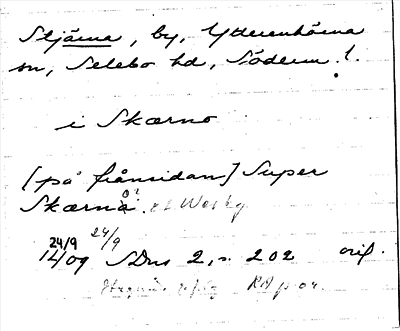 Stjärna, by, Ytterenhörna
sn, Selebo hd, Söderm. l.
i Skærno
[på frånsidan] Super
Skærnä o? et Wesby
24/9 24/9
1409 SDns 2, s. 202 orig.
RA p or.